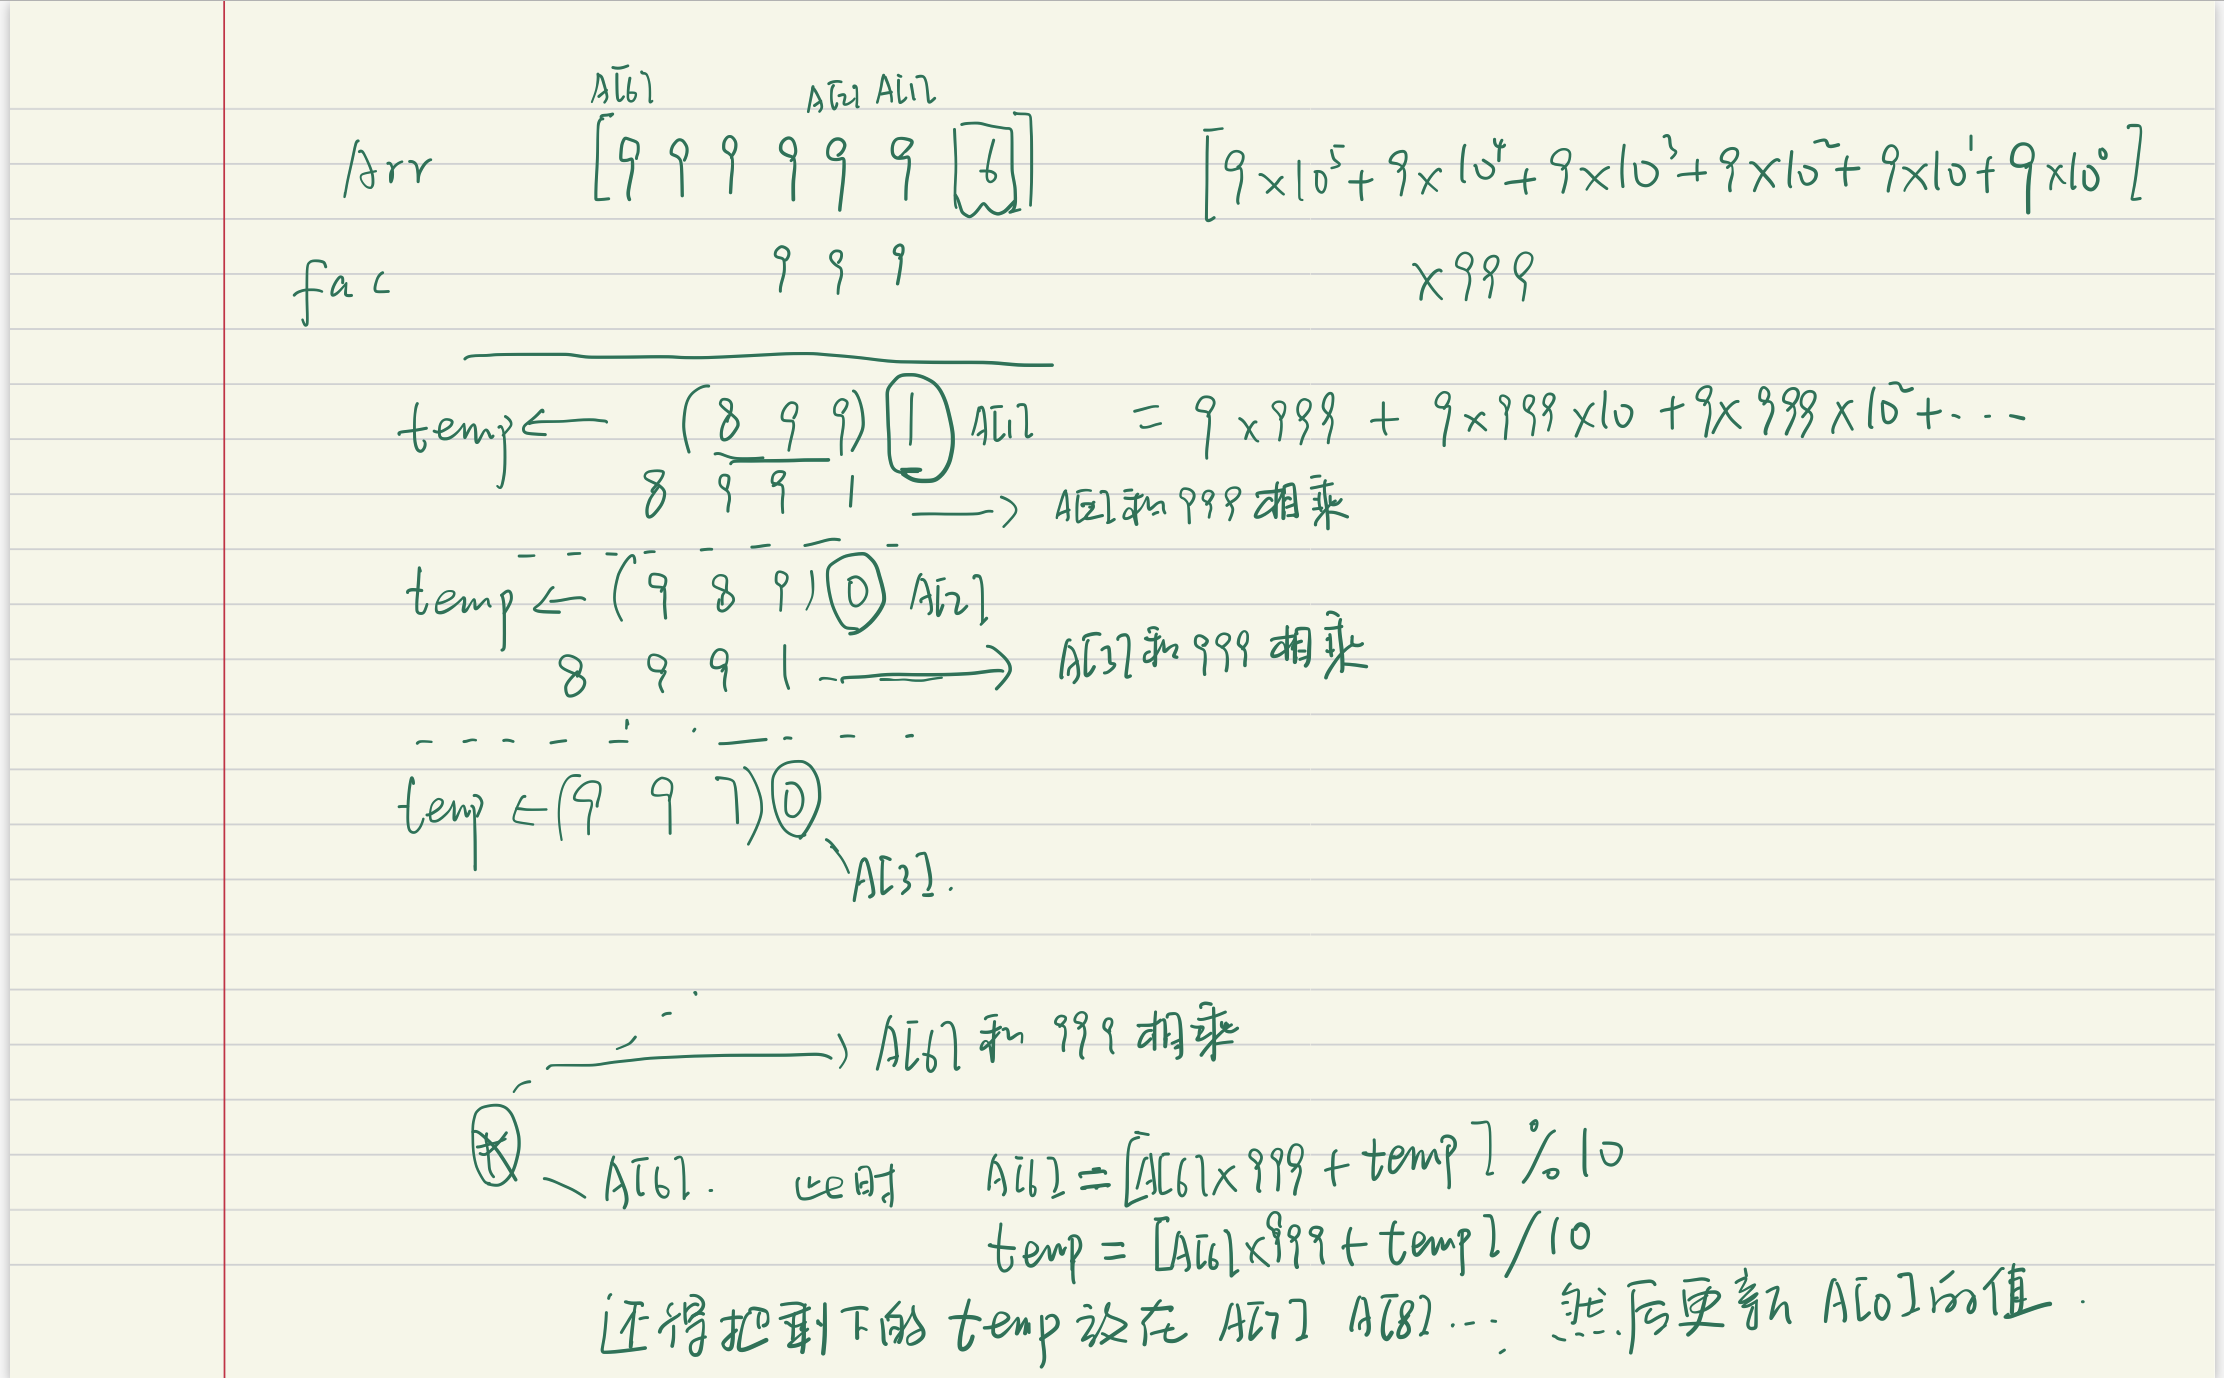 A[6] A[2] A[1]
Arr [9 9 9 9 9 9 [6]] [9×10⁵+9×10⁴+9×10³+9×10²+9×10¹+9×10⁰]
fac 9 9 9 ×999
temp ← (8 9 9) 1 A[1] = 9×999 + 9×999×10 + 9×999×10²+···
8 9 9 1 → A[2]和999相乘
temp ← (9 8 9) 0 A[2]
8 9 9 1 → A[3]和999相乘
temp ← (9 9 7) 0
A[3].
→ A[6]和999相乘
A[6]. 此时 A[6]=[A[6]×999+temp]%10
temp=[A[6]×999+temp]/10
还得把剩下的temp放在A[7] A[8]... 然后更新A[0]的值.